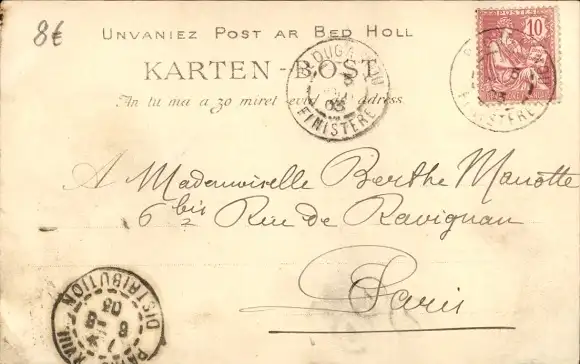 8€
UNVANIEZ POST AR BED HOLL
KARTEN-BOST
An tu ma a zo miret evid ar adress
10
FINISTÈRE
03
FINISTÈRE
A Mademoiselle Berthe Manotte
6 bis Rue de Ravignan
Paris
PARIS XVIII
DISTRIBUTION
03